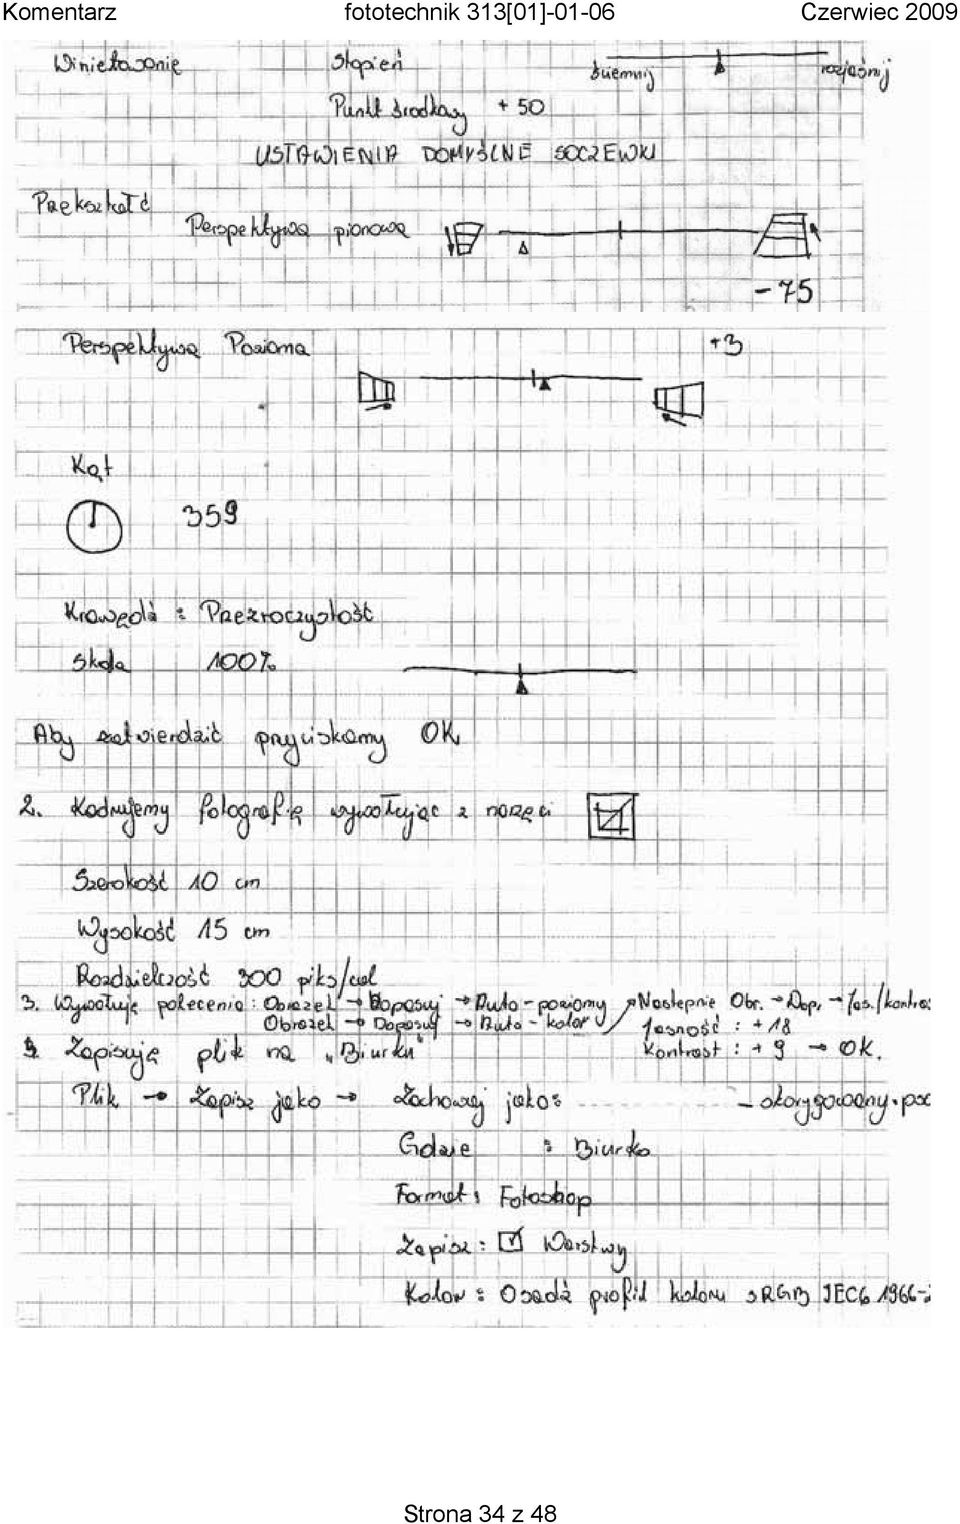 Komentarz fototechnik 313[01]-01-06 Czerwiec 2009
Winietowanie Stopień ściemnij rozjaśnij
Punkt środkowy + 50
USTAWIENIA DOMYŚLNE SOCZEWKI
Przekształć
Perspektywa pionowa
- 75
Perspektywa Pozioma +3
Kąt
359
Krawędź : Przezroczystość
Skala 100%
Aby zatwierdzić przyciskamy OK
2. Kadrujemy fotografię wywołując z narzęci
Szerokość 10 cm
Wysokość 15 cm
Rozdzielczość 300 piks/cal
3. Wywołuję polecenia : Obrazek → Dopasuj → Auto - poziomy Następnie Obr. → Dop. → Jas./kontra
Obrazek → Dopasuj → Auto - kolor Jasność : + 18
Zapisuję plik na „Biurku” Kontrast : + 9 → OK.
Plik → Zapisz jako → Zachowaj jako: - skorygowany.ps
Gdzie : Biurko
Format : Fotoshop
Zapisz : Warstwy
Kolor : Osadź profil koloru sRGB IEC6 1966-2
Strona 34 z 48